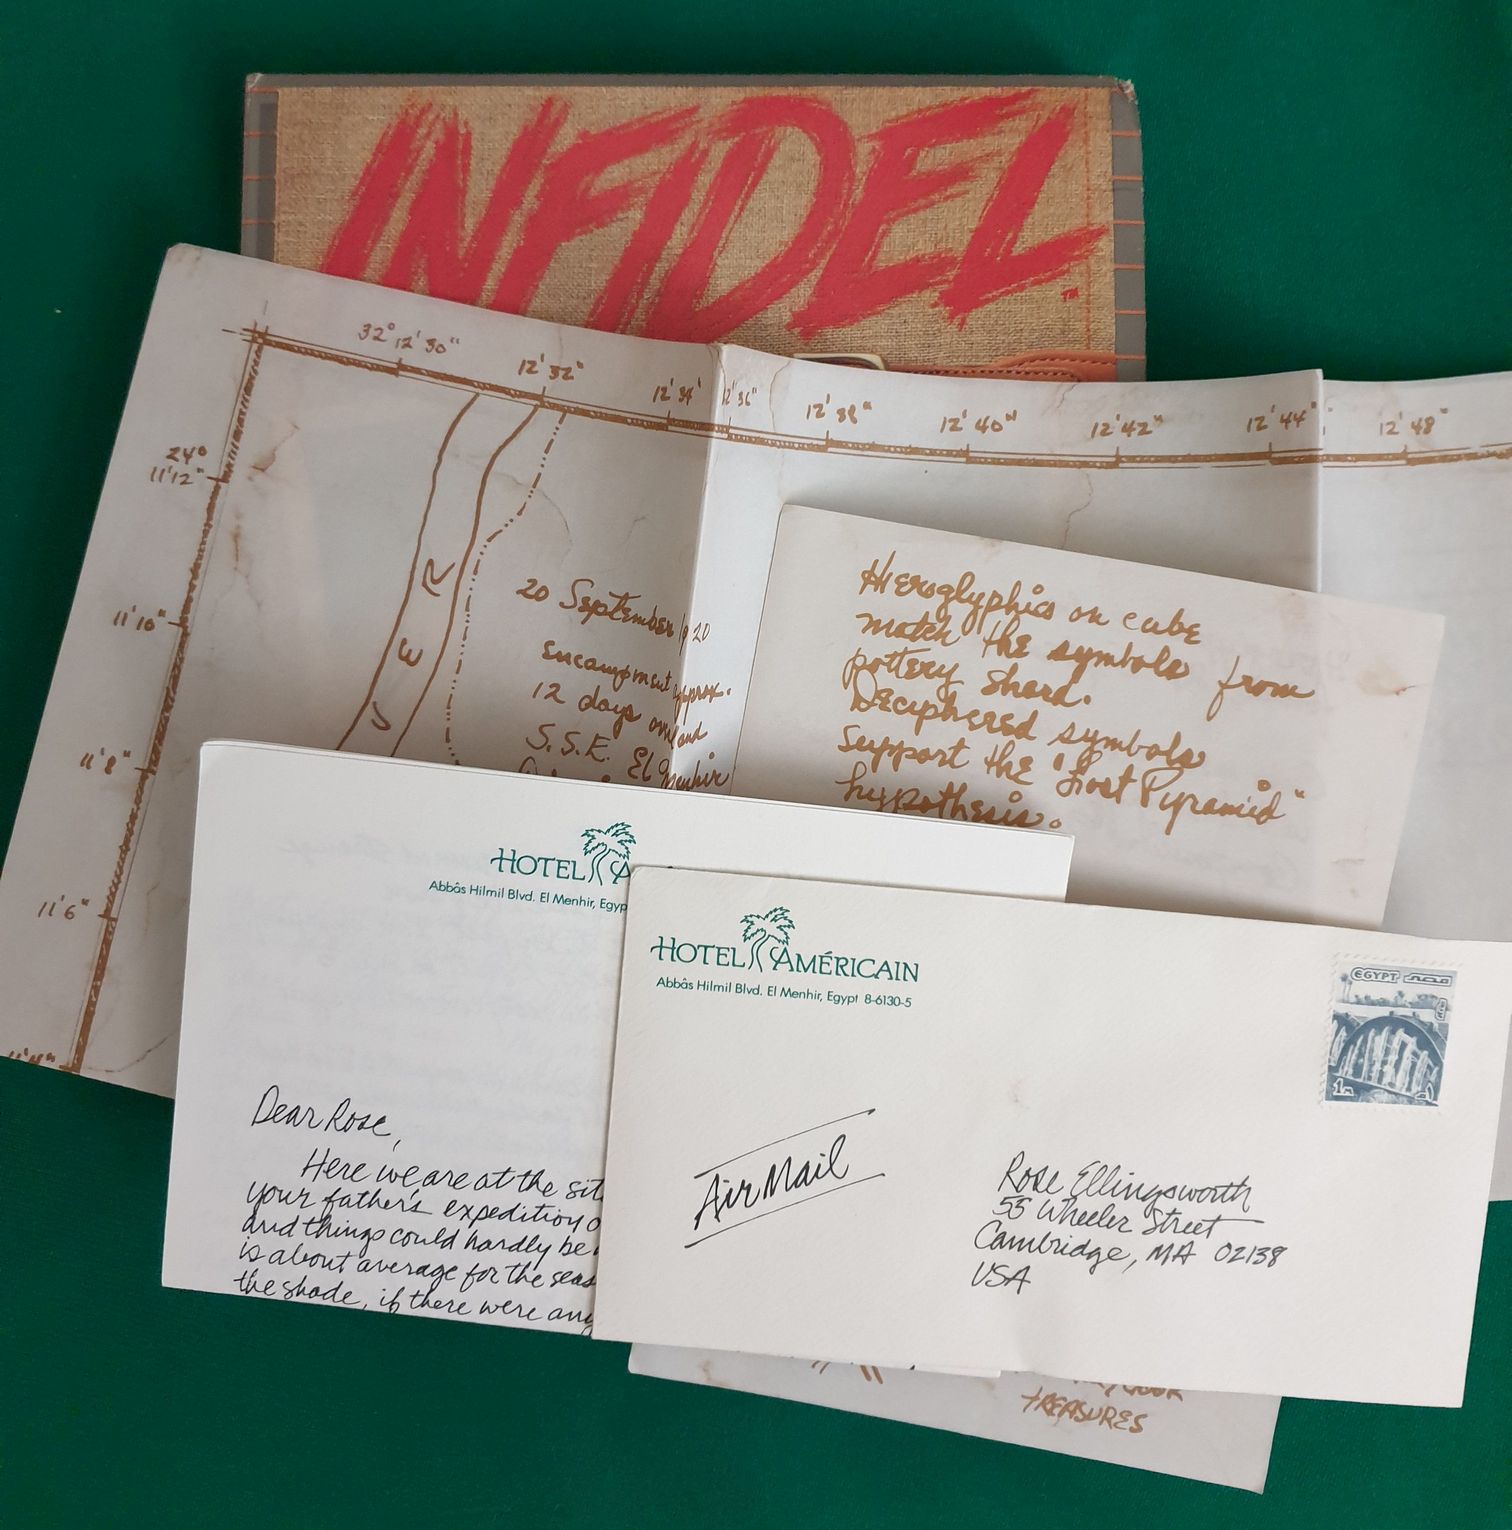 INFIDEL
TM
32° 12'30"
12'32"
12'34'
12'36"
12'38"
12'40"
12'42"
12'44"
12'48"
24°
11'12"
11'10"
11'8"
11'6"
11'4"
R
E
V
20 September 1920
encampment approx.
12 days overland
S.S.E. El Menhir
Hieroglyphics on cube
match the symbols from
pottery shard.
Deciphered symbols
support the "Lost Pyramid"
hypothesis.
HOTEL A
Abbâs Hilmil Blvd. El Menhir, Egyp
Dear Rose,
Here we are at the sit
your father's expedition o
and things could hardly be
is about average for the seas
the shade, if there were any
HOTEL AMÉRICAIN
Abbâs Hilmil Blvd. El Menhir, Egypt 8-6130-5
EGYPT مصر
1m
Air Mail
Rose Ellingsworth
55 Wheeler Street
Cambridge, MA 02138
USA
TREASURES